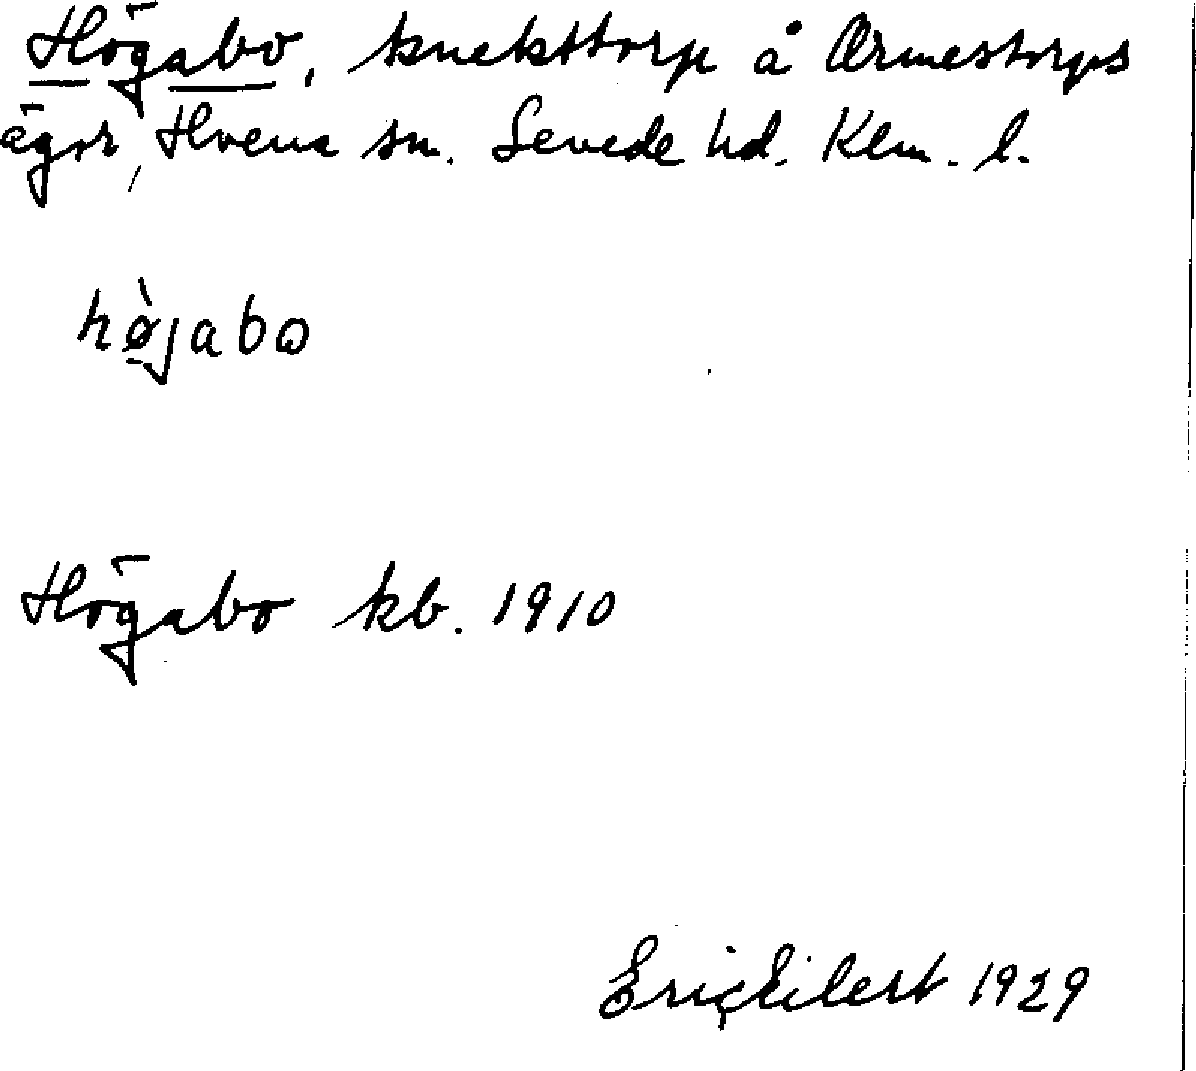 Högabo, knekttorp å Ormestorps
ägor, Hvena sn. Sevede hd. Klm. l.
hø̀jabo
Högabo kb. 1910
Eric Eilert 1929